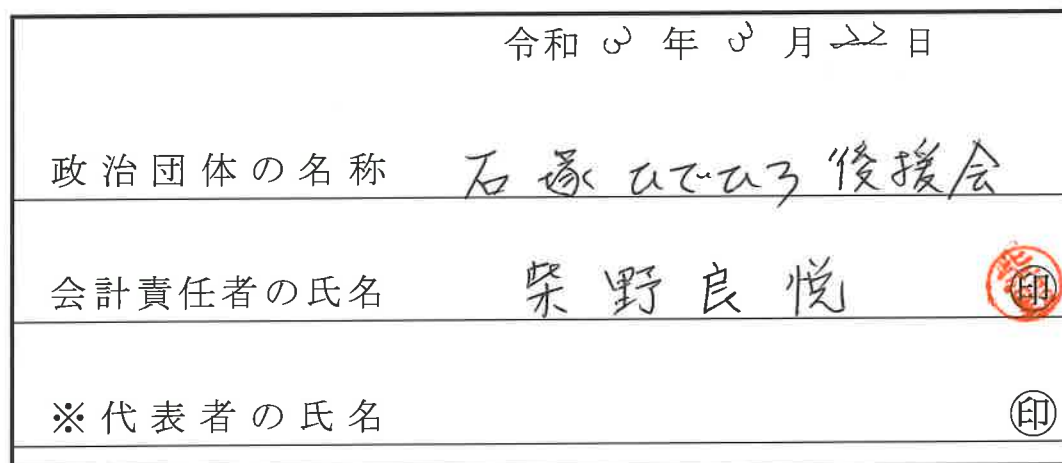 令和 3 年 3 月 22 日
政治団体の名称 石塚ひでひろ後援会
会計責任者の氏名 柴野良悦 ㊞
※代表者の氏名 ㊞